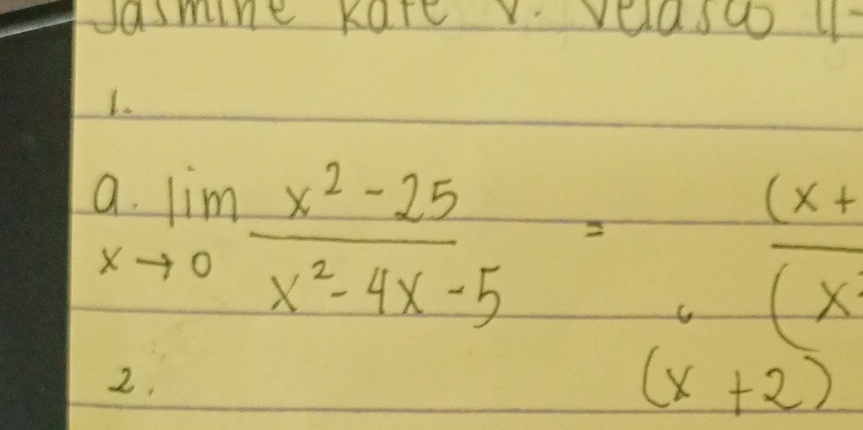 Jasmine Kate V. Velasco 11-
1.
a. lim x² - 25 = (x +
x → 0 x² - 4x - 5 (x²
2. (x + 2)